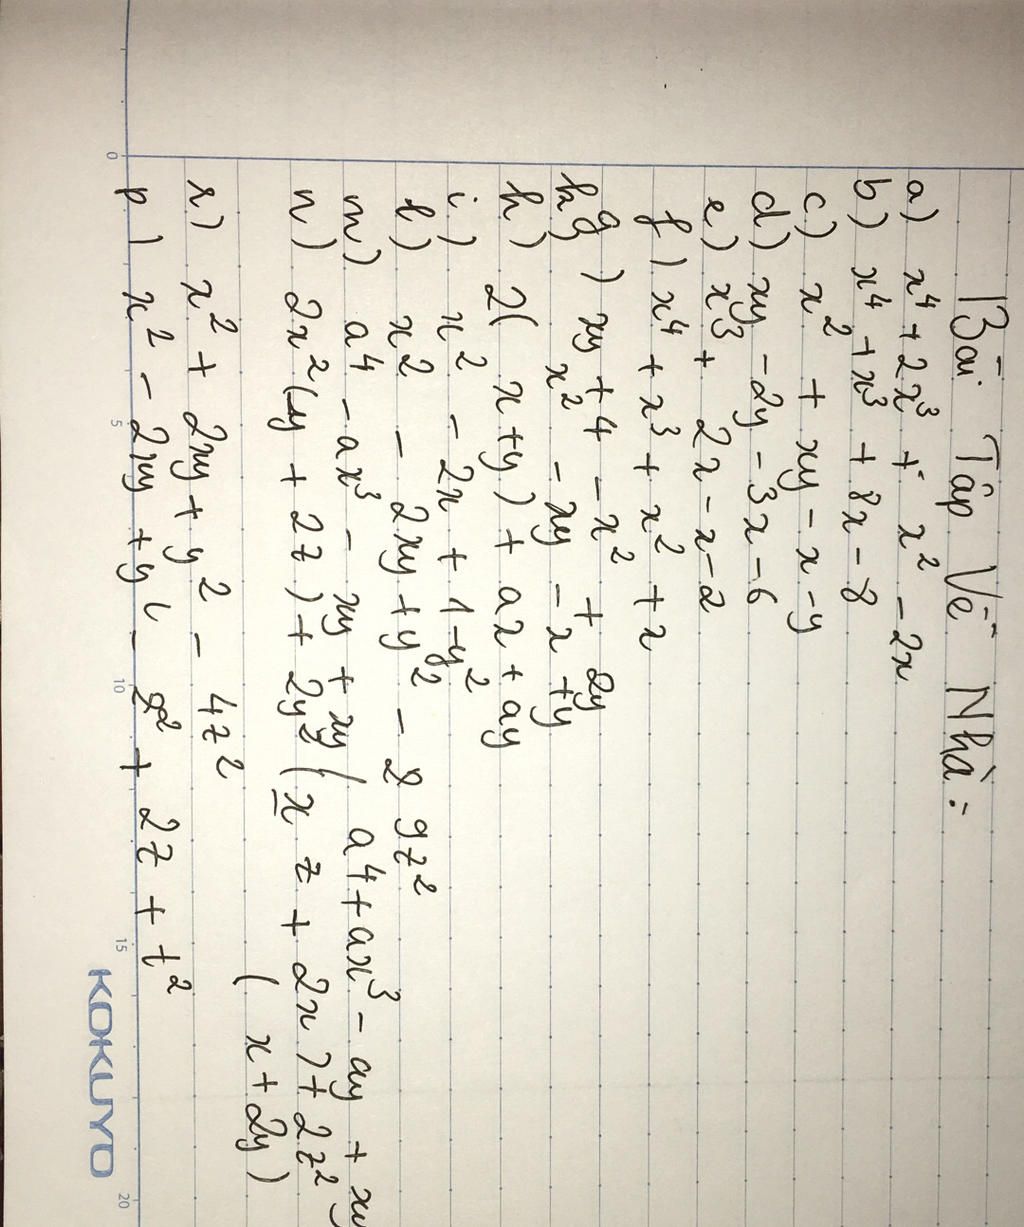 Bài Tập Về Nhà:
a) x⁴ + 2x³ + x² - 2x
b) x⁴ + x³ + 8x - 8
c) x² + xy - x - y
d) xy - 2y - 3x - 6
e) x³ + 2x - x - 2
f) x⁴ + x³ + x² + x
g) xy + 4 - x² + 2y
x² - xy - x + y
h) 2(x+y) + ax + ay
i) x² - 2x + 1 - y²
l) x² - 2xy + y² - 9z²
m) a⁴ - ax³ - xy + xy / a⁴ + ax³ - ay + xy
n) 2x²(y + 2z) + 2y² (x z + 2x) + 2z²
(x + 2y)
r) x² + 2xy + y² - 4z²
p) x² - 2xy + y² - z² + 2z + t²
0 5 10 15 20
KOKUYO